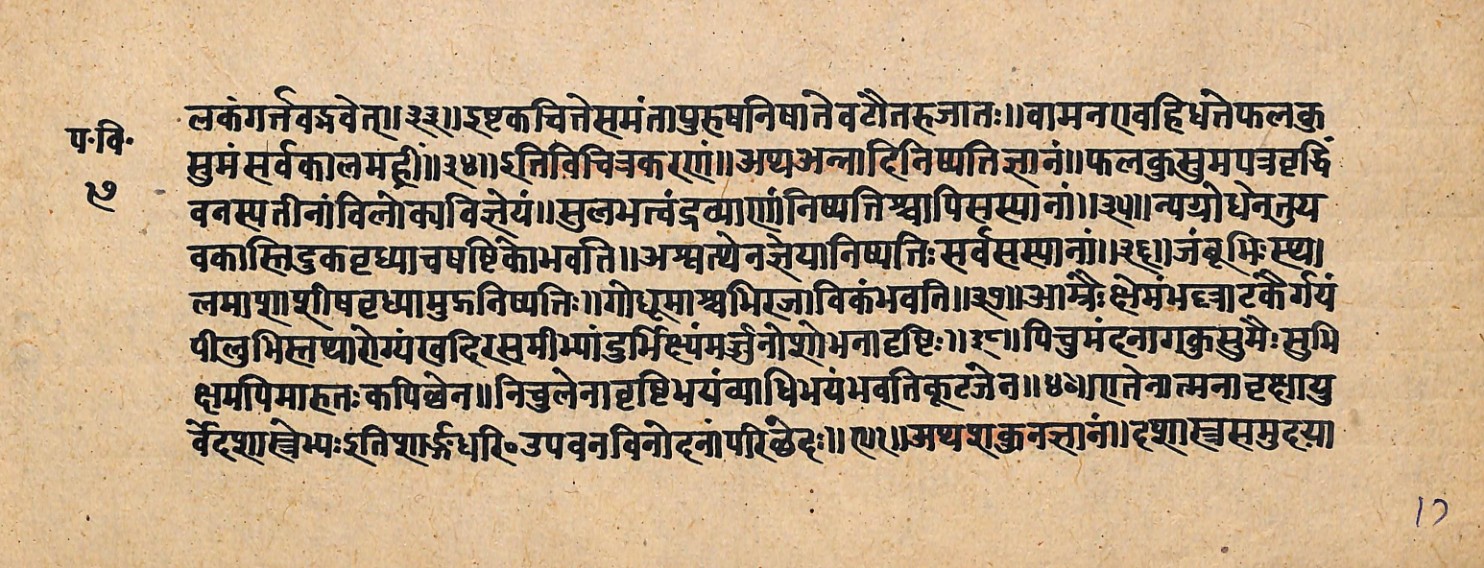 प॰वि॰
१७
लकंगर्त्तवद्भवेत्॥३३॥इष्टकचित्तेसमंतापुरुषनिषातेवटौतरुजातः॥वामनएवहिधंत्तेफलकु
सुमंसर्वकालमह्रीं॥३४॥इतिविचित्रकरणं॥अथअन्नादिनिष्पत्तिज्ञानं॥फलकुसुमपत्रवृद्धिं
वनस्पतीनांविलोक्यविज्ञेयं॥सुलभत्त्वंद्रव्याणांनिष्पत्तिश्चापिसस्यानां॥३५॥न्यग्रोधेन्तुय
वकास्तिंडुकवृध्याचषष्टिकोभवति॥अश्वत्थेनज्ञेयानिष्पत्तिःसर्वसस्यानां॥३६॥जंबूभिःस्था
लमाशाशीषवृध्यामुद्गनिष्पत्तिः॥गोधूमाश्चभिरजाविकंभवति॥३७॥आम्रैःक्षेमंभद्दत्राटंकैर्गयं
पीलुभिस्तथारोग्यंखदिरसमीभ्यांडुर्भिक्ष्यंमर्ज्जुनोशोभनावृष्टिः॥३८॥पिचुमंदनागकुसुमैःसुभि
क्षमपिमारुतःकपिछेन॥निचुलेनावृष्टिभयंव्याधिभयंभवतिकूटजेन॥एतेनात्मनावृक्षायु
र्वेदशास्त्रेभ्यःइतिशार्ङ्गधरि॰उपवनविनोदनांपरिछेदः॥१॥अथशकुनज्ञानं॥दशास्त्रसमुदया
17